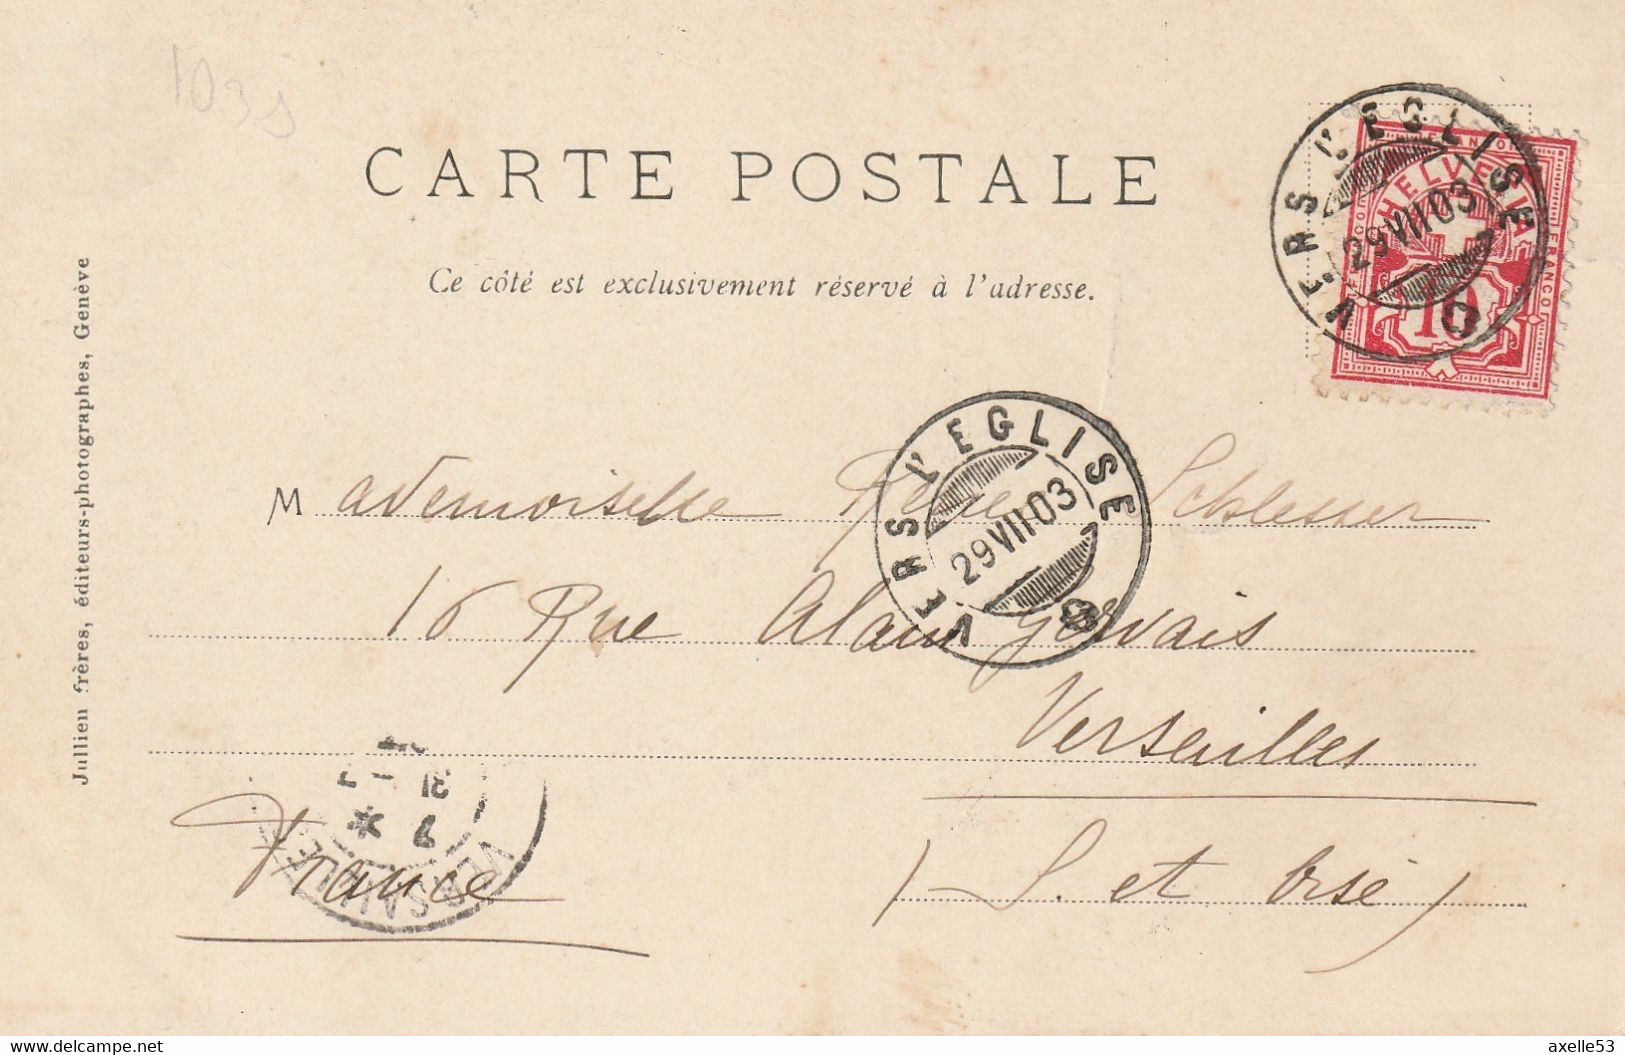 103s
CARTE POSTALE
Ce côté est exclusivement réservé à l'adresse.
Jullien frères, éditeurs-photographes, Genève
VERS L'EGLISE
29 VII 03
HELVETIA
FRANCO
10
VERS L'EGLISE
29 VII 03
Mademoiselle Schlesser
16 Rue Alain Gervais
Versailles
France
(S. et Oise)
VERSAILLES
7 *
31 - 7
delcampe.net
axelle53